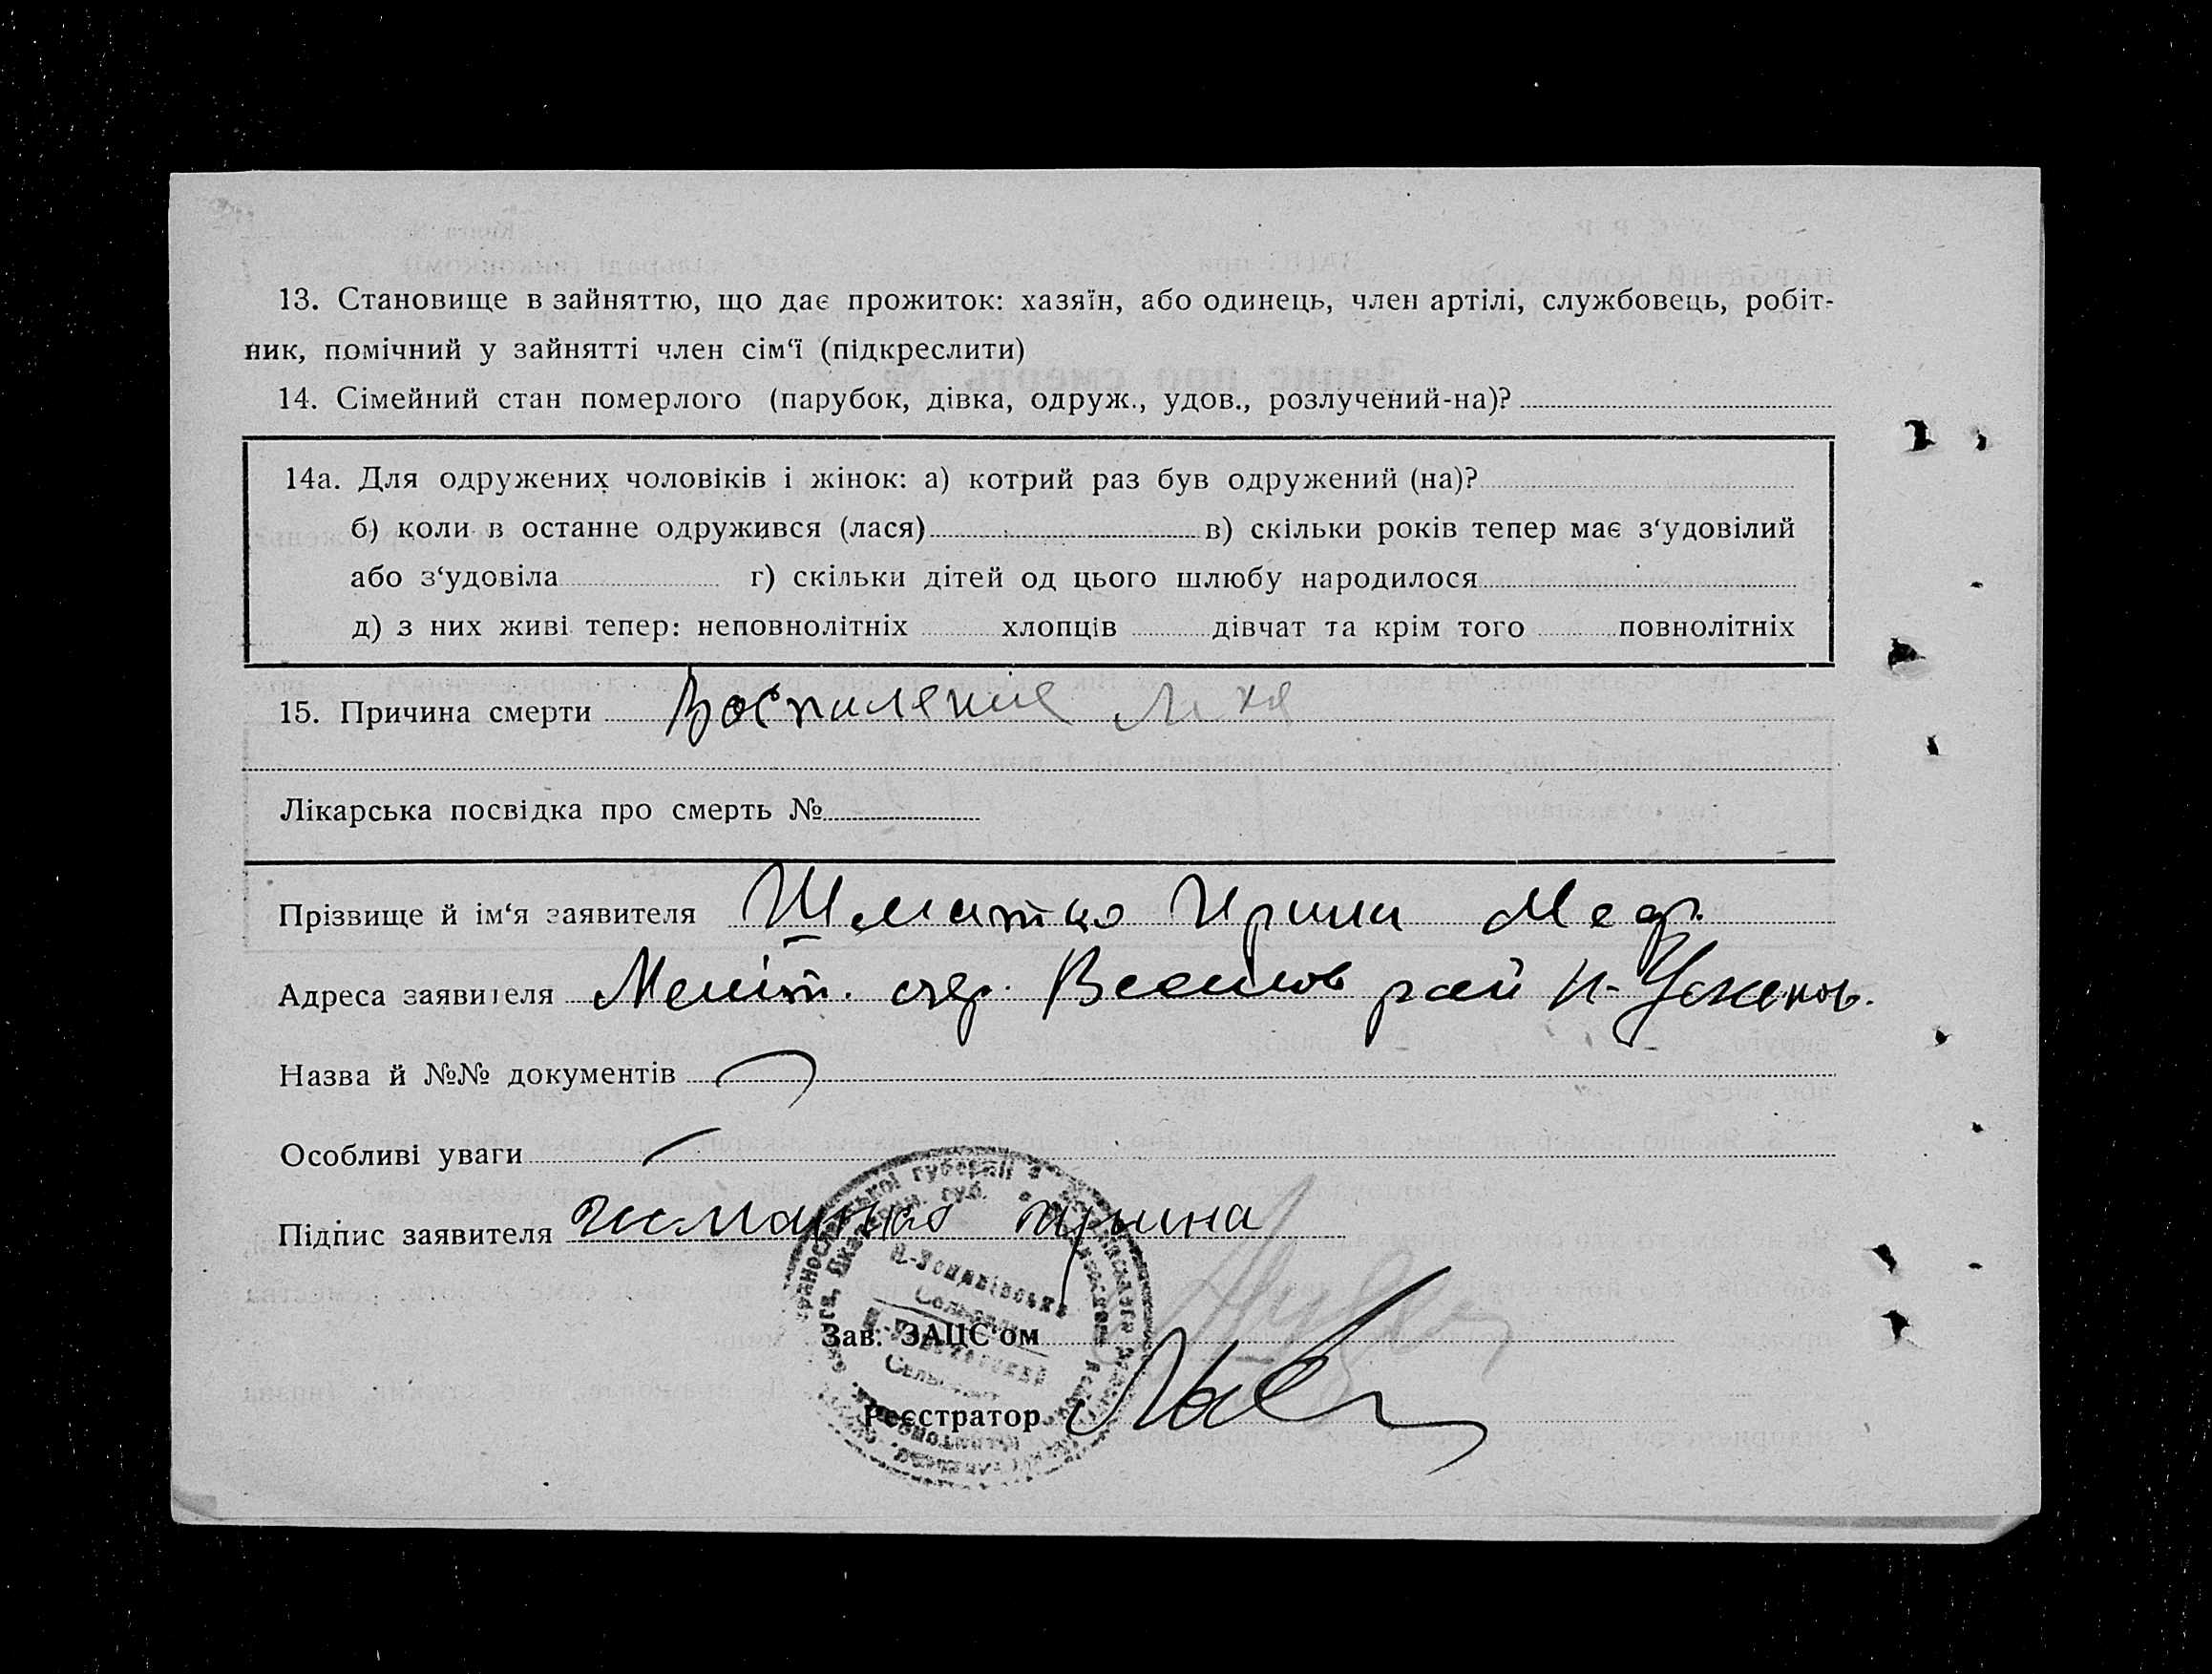 13. Становище в зайняттю, що дає прожиток: хазяїн, або одинець, член артілі, службовець, робіт-
ник, помічний у зайнятті член сім‘ї (підкреслити)
14. Сімейний стан померлого (парубок, дівка, одруж., удов., розлучений-на)?
14а. Для одружених чоловіків і жінок: а) котрий раз був одружений (на)?
б) коли в останне одружився (лася) в) скільки років тепер має з‘удовілий
або з‘удовіла г) скільки дітей од цього шлюбу народилося
д) з них живі тепер: неповнолітніх хлопців дівчат та крім того повнолітніх
15. Причина смерти Воспиление
Лікарська посвідка про смерть №
Прізвище й ім‘я заявителя Шматко Ирина
Адреса заявителя Меліт. окр. Веселов рай
Назва й №№ документів
Особливі уваги
Підпис заявителя
Зав. ЗАЦС‘ом
Реєстратор